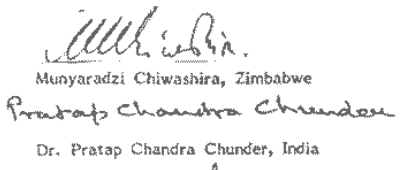 Munyaradzi Chiwashira, Zimbabwe
Pratap Chandra Chunder
Dr. Pratap Chandra Chunder, India